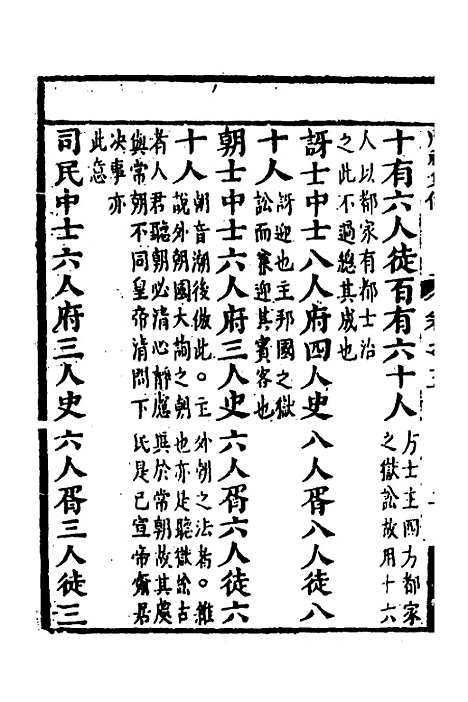 十有六人徒百有六十人
方士主四方都家
之獄訟故用十六
人以都家有都士治
之此不過總其成也
訝士中士八人府四人史八人胥八人徒八
十人
訝迎也主邦國之獄
訟而兼迎其賓客也
朝士中士六人府三人史六人胥六人徒六
十人
朝音潮後倣此。主外朝之法者。雖
說外朝國大詢之朝也亦是聽獄訟古
者人君聽朝必清心靜慮異於常朝故其處
與常朝不同皇帝清問下民是已宣帝齋居
决事亦
此意
司民中士六人府三人史六人胥三人徒三